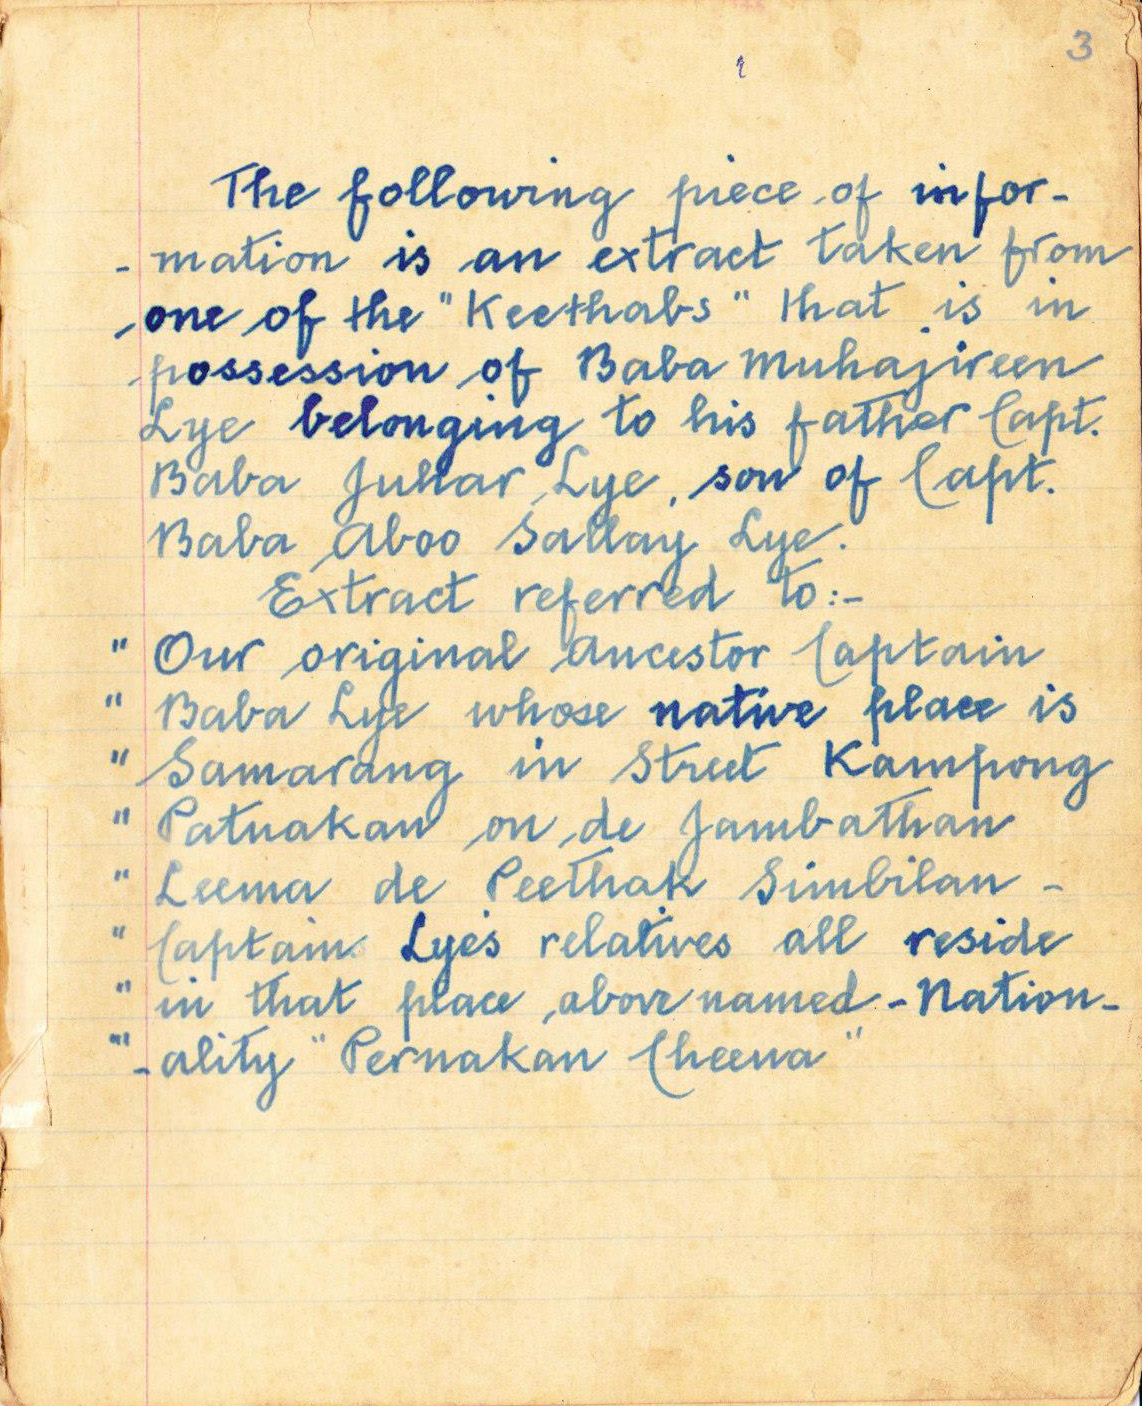 3
The following piece of infor-
- mation is an extract taken from
one of the "Keethabs" that is in
possession of Baba Muhajireen
Lye belonging to his father Capt.
Baba Juhar Lye, son of Capt.
Baba Aboo Sallay Lye.
Extract referred to:-
" Our original Ancestor Captain
" Baba Lye whose native place is
" Samarang in Street Kampong
" Patuakan on de Jambathan
" Leema de Peethak Simbilan -
" Captain Lye's relatives all reside
" in that place above named - Nation-
" - ality "Pernakan Cheena"